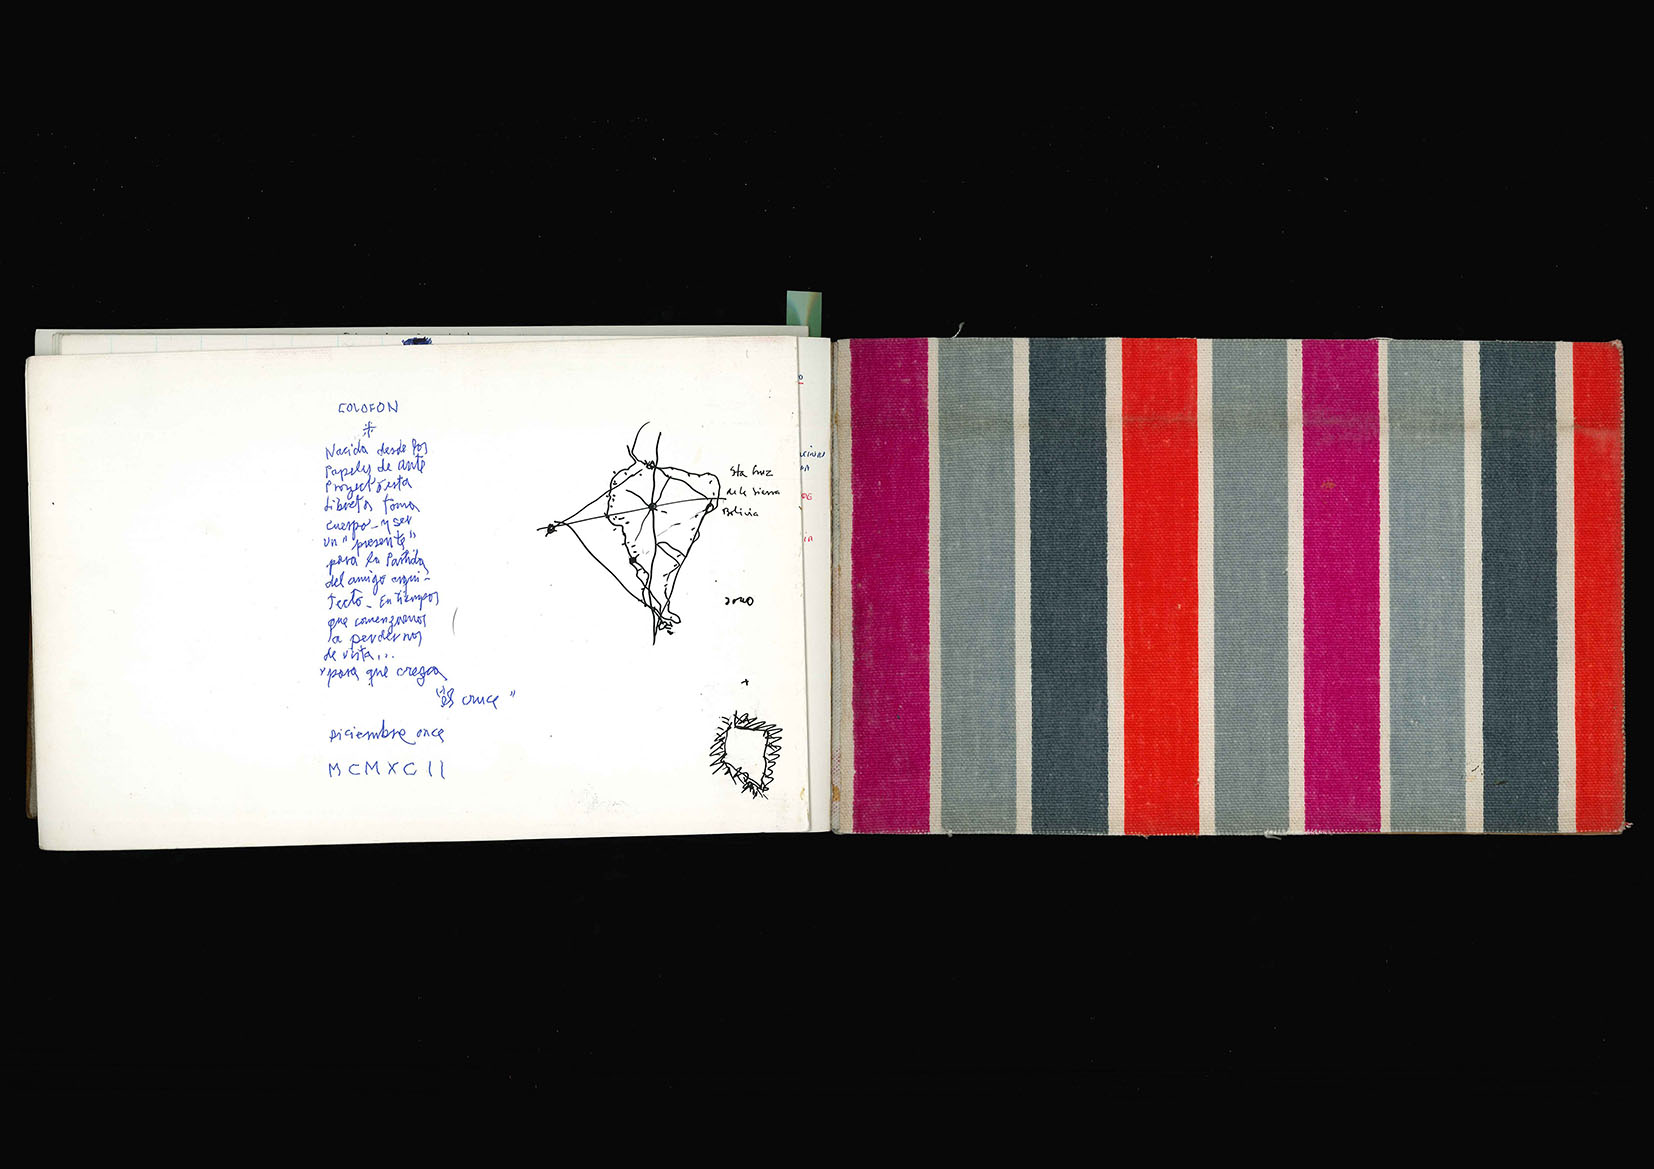 COLOFON
Nacida desde los
Papeles de ante
Proyecto esta
Libreta toma
cuerpo - y ser
un "presente"
para la Partida
del amigo arqui-
tecto - En tiempos
que comenzamos
a perdernos
de vista...
"para que crezca
"el cruce"
Diciembre once
MCMXCII
Sta Cruz
de la Sierra
Bolivia